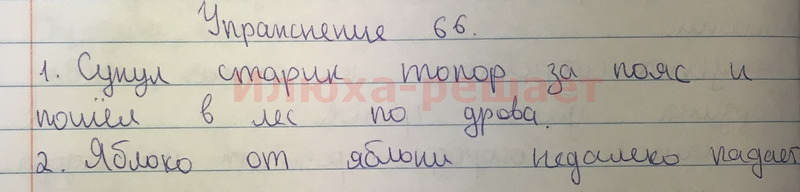 Упражнение 66.
1. Сунул старик топор за пояс и
илюха-решает
пошёл в лес по дрова.
2. Яблоко от яблони недалеко падает